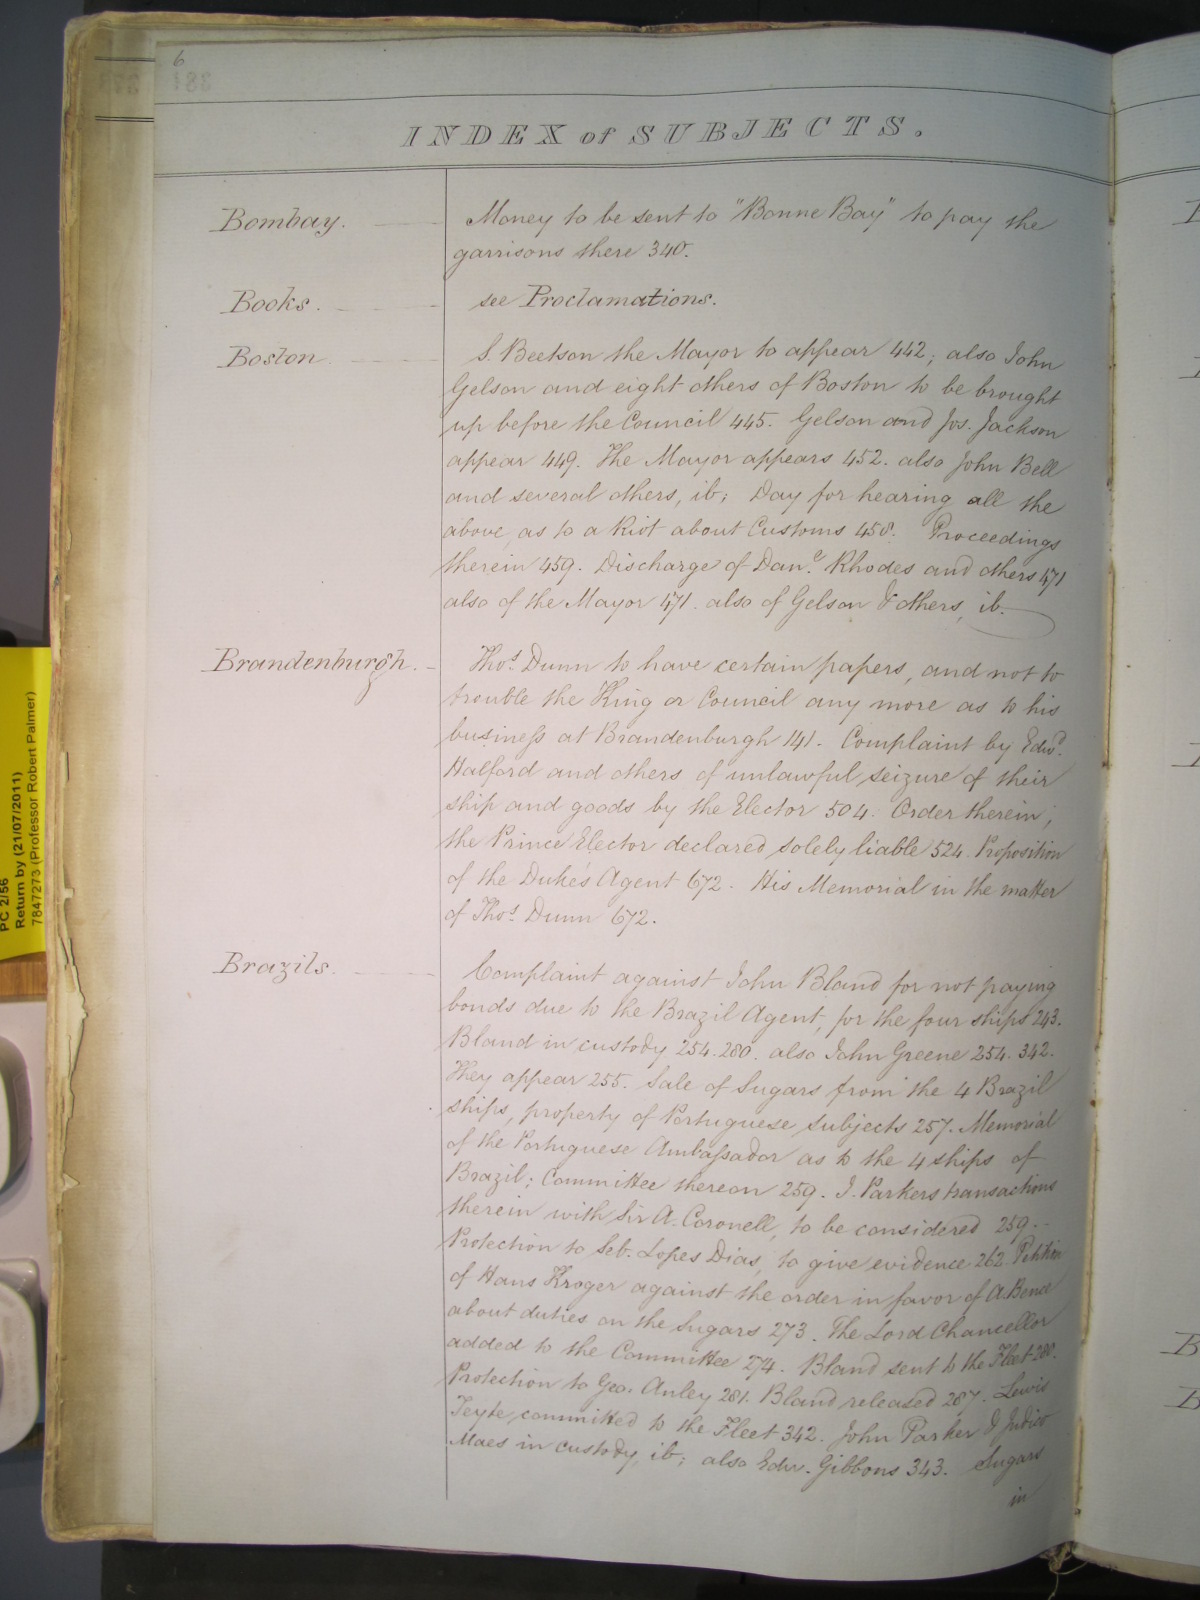 6
INDEX of SUBJECTS.
Bombay. Money to be sent to "Bonne Bay" to pay the
garrisons there 340.
Books. see Proclamations.
Boston. S. Beetson the Mayor to appear 442; also John
Gelson and eight others of Boston to be brought
up before the Council 445. Gelson and Jos. Jackson
appear 449. The Mayor appears 452. also John Bell
and several others, ib; Day for hearing all the
above, as to a Riot about Customs 458. Proceedings
therein 459. Discharge of Danl. Rhodes and others 471
also of the Mayor 471. also of Gelson & others, ib.
Brandenburgh. Thos. Dunn to have certain papers, and not to
trouble the King or Council any more as to his
business at Brandenburgh 141. Complaint by Edwd.
Halford and others of unlawful seizure of their
ship and goods by the Elector 504. Order therein;
the Prince Elector declared solely liable 524. Proposition
of the Duke's Agent 672. His Memorial in the matter
of Thos. Dunn 672.
Brazils. Complaint against John Bland for not paying
bonds due to the Brazil Agent, for the four ships 243.
Bland in custody 254. 280. also John Greene 254. 342.
They appear 255. Sale of Sugars from the 4 Brazil
ships, property of Portuguese subjects 257. Memorial
of the Portuguese Ambassador as to the 4 ships of
Brazil; Committee thereon 259. J. Parkers transactions
therein with Sir A. Coronell, to be considered 259.
Protection to Seb. Lopes Dias, to give evidence 262. Petition
of Hans Kroger against the order in favor of A. Bence
about duties on the Sugars 273. The Lord Chancellor
added to the Committee 274. Bland sent to the Fleet 280.
Protection to Geo. Anley 281. Bland released 287. Lewis
Teyte, committed to the Fleet 342. John Parker & Judico
Maes in custody, ib; also Edw. Gibbons 343. Sugars
in
PC 2/56
Return by (21/07/2011)
7847273 (Professor Robert Palmer)